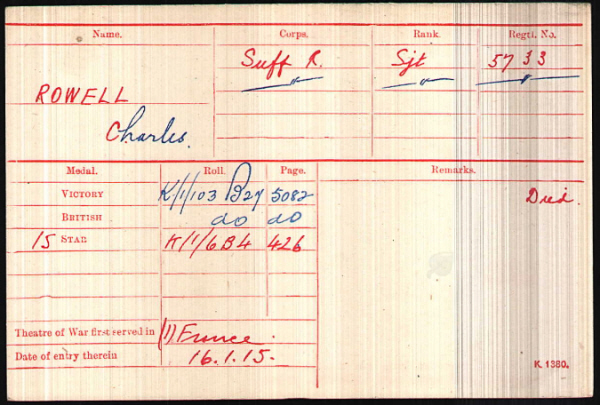 Name. Corps. Rank. Regtl. No.
Suff R. Sjt 5733
ROWELL
Charles.
Medal. Roll. Page. Remarks.
VICTORY K/1/103 B27 5082 Died.
BRITISH do do
15 STAR K/1/6B4 426
Theatre of War first served in (1) France.
Date of entry therein 16.1.15.
K 1380.